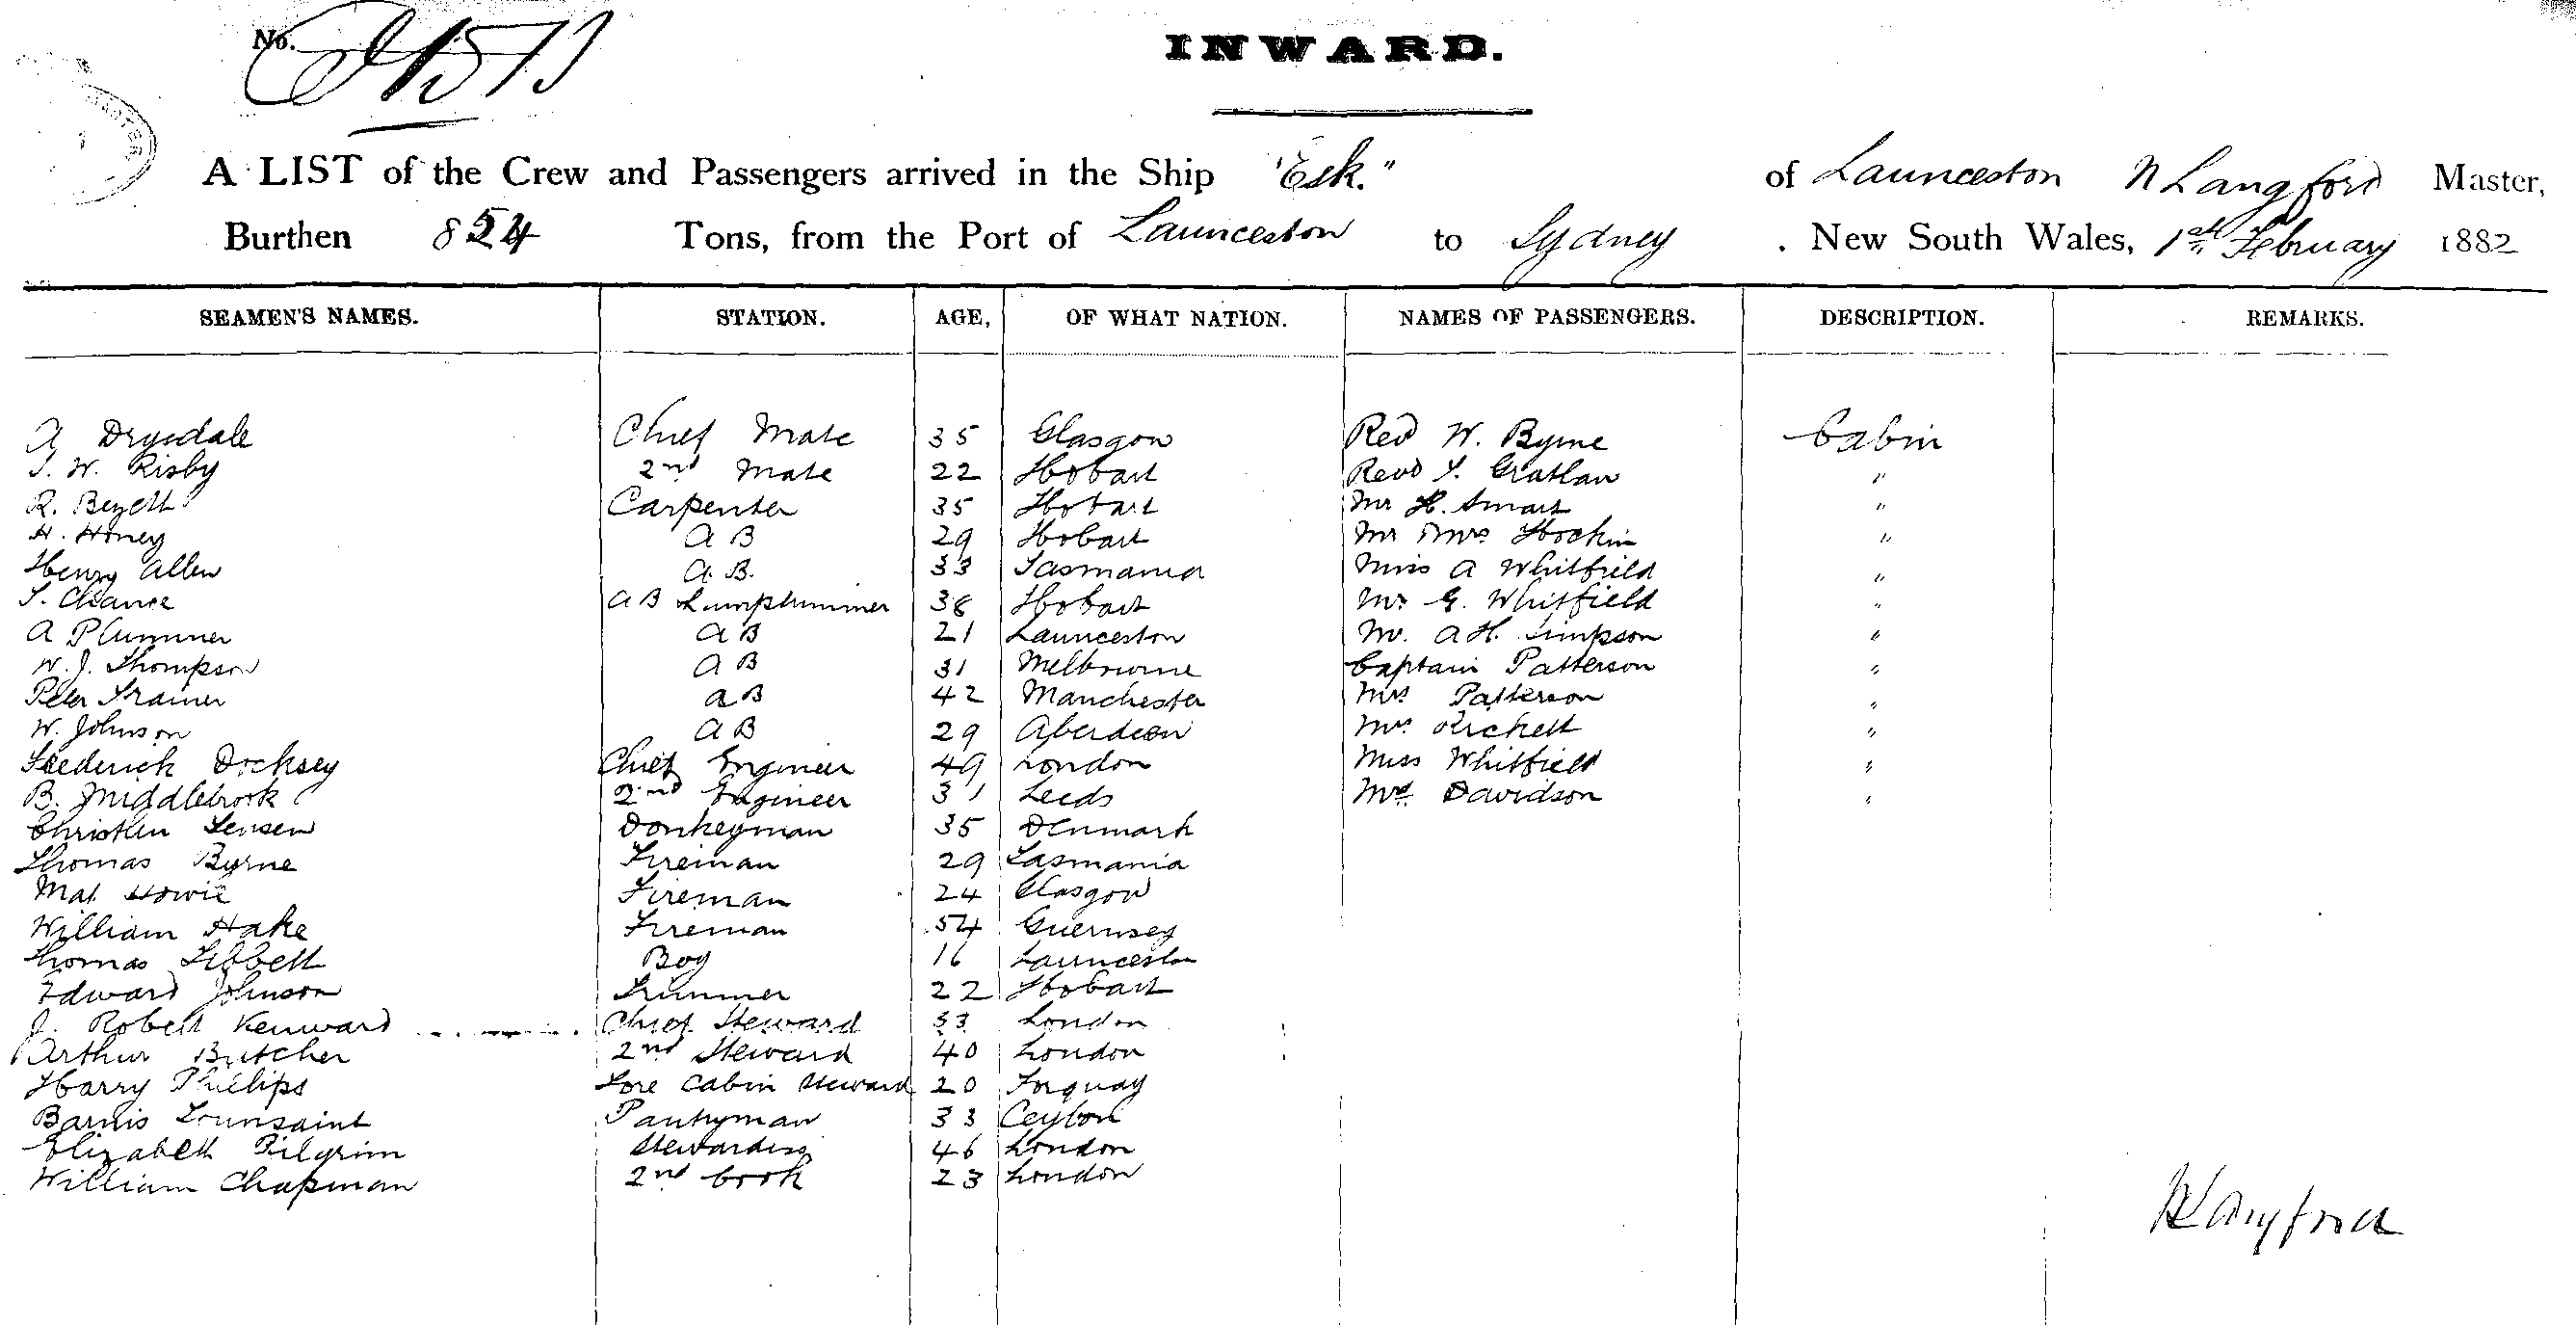 No.
INWARD.
A LIST of the Crew and Passengers arrived in the Ship "Esk." of Launceston N Langford Master,
Burthen 824 Tons, from the Port of Launceston to Sydney. New South Wales, 1st February 1882
SEAMEN'S NAMES. STATION. AGE, OF WHAT NATION. NAMES OF PASSENGERS. DESCRIPTION. REMARKS.
A Drysdale Chief Mate 35 Glasgow Revd W. Byrne Cabin
J. W. Risby 2nd Mate 22 Hobart Revd "
R. Bezett Carpenter 35 Hobart Mr H. Smart "
H. Honey A B 29 Hobart Mr Mrs Hockin "
Henry Allen A. B. 33 Tasmania Miss A Whitfield "
Chance A B Lamptrimmer 38 Hobart Mr G. Whitfield "
A Plummer A B 21 Launceston Mr. A H. Simpson "
W. J. Thompson A B 31 Melbourne Captain Patterson "
Peter Trainer A B 42 Manchester Mrs Patterson "
W. Johnson A B 29 Aberdeen Mrs Rickett "
Frederick Docksey Chief Engineer 49 London Miss Whitfield "
B. Middlebrook 2nd Engineer 31 Leeds Mrs Davidson "
Christen Jensen Donkeyman 35 Denmark
Thomas Byrne Fireman 29 Tasmania
Mat Howie Fireman 24 Glasgow
William Hake Fireman 54 Guernsey
Thomas Tibbett Boy 16 Launceston
Edward Johnson Trimmer 22 Hobart
J. Robert Kenward Chief Steward 33 London
Arthur Butcher 2nd Steward 40 London
Harry Phillips Fore Cabin Steward 20 Torquay
Barnis Tounsaint Pantryman 33 Ceylon
Elizabeth Pilgrim Stewardess 46 London
William Chapman 2nd Cook 23 London
N Langford